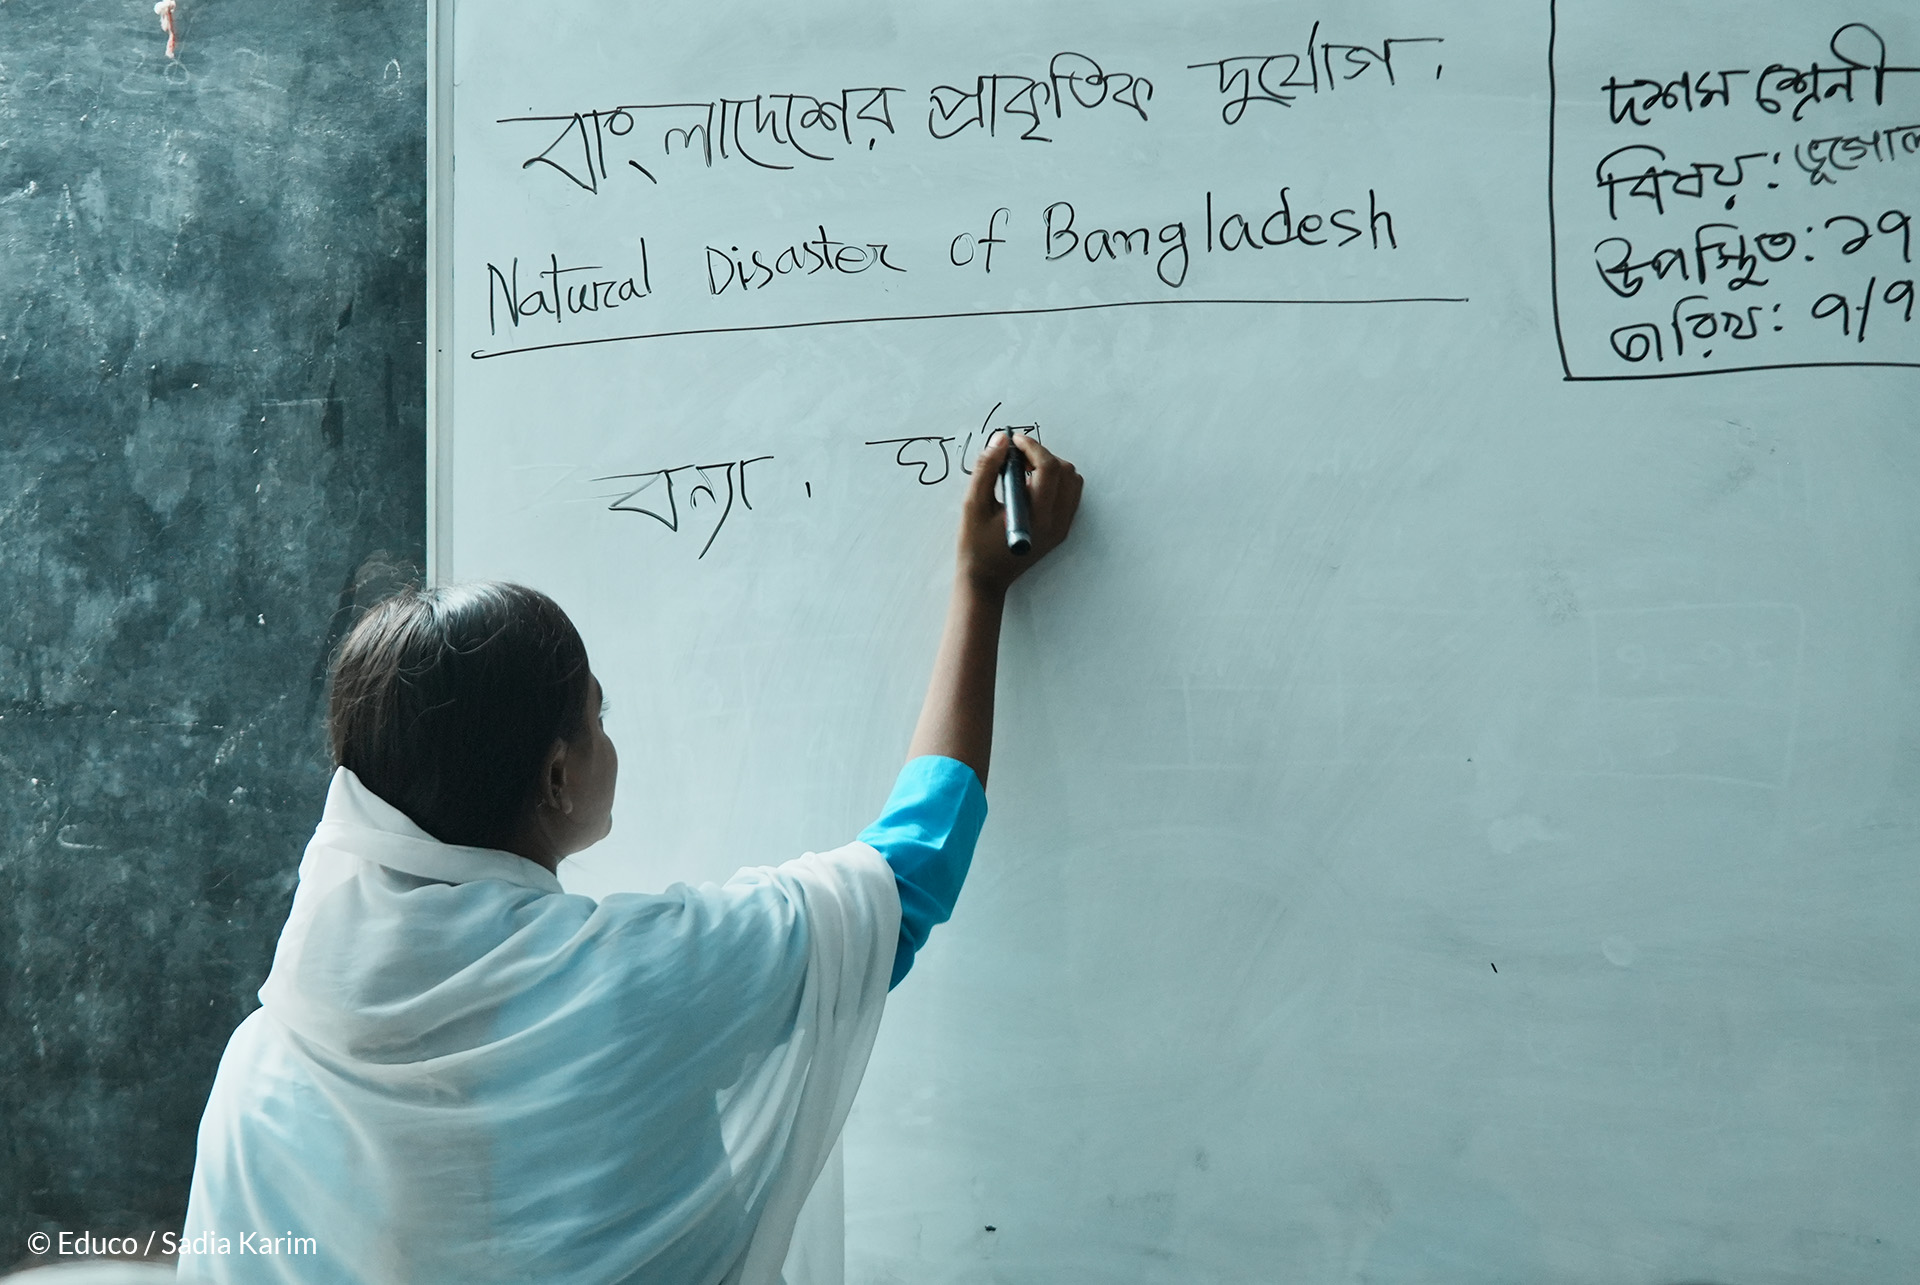 বাংলাদেশের প্রাকৃতিক দুর্যোগ.
Natural Disaster of Bangladesh
বন্যা,
দশম শ্রেনী
বিষয়: ভূগোল
উপস্থিত: ২৭
তারিখ: ৭/৭
© Educo / Sadia Karim